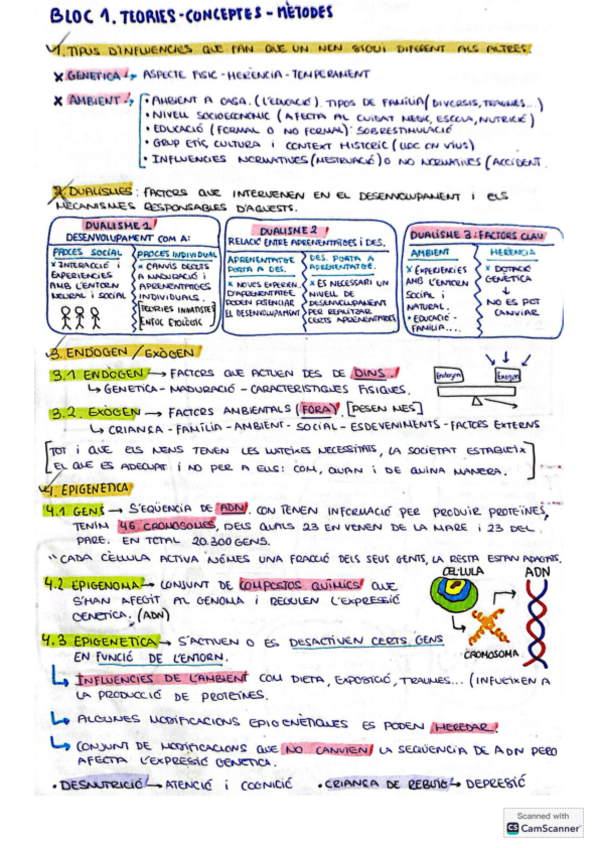 BLOC 1. TEORIES - CONCEPTES - MÈTODES
1. TIPUS D'INFLUENCIES QUE FAN QUE UN NEN SIGUI DIFERENT ALS ALTRES.
× GENETICA ↳ ASPECTE FISIC - HERÈNCIA - TEMPERAMENT
× AMBIENT ↳ • AMBIENT A CASA. (L'EDUCACIÓ). TIPOS DE FAMÍLIA (DIVORCIS, TRAUMES...)
• NIVELL SOCIOECONÒMIC (AFECTA AL CUIDAT MEDIC, ESCOLA, NUTRICIÓ)
• EDUCACIÓ (FORMAL O NO FORMAL): SOBRESTIMULACIÓ
• GRUP ETIC, CULTURA I CONTEXT HISTORIC (LLOC ON VIUS)
• INFLUENCIES NORMATIVES (MESTRUACIÓ) O NO NORMATIVES (ACCIDENT.
2. DUALISMES: FACTORS QUE INTERVENEN EN EL DESENVOLUPAMENT I ELS
MECANISMES RESPONSABLES D'AQUESTS.
DUALISME 1
DESENVOLUPAMENT COM A:
PROCES SOCIAL
× INTERACCIÓ I
EXPERIENCIES
AMB L'ENTORN
NEURAL I SOCIAL
PROCES INDIVIDUAL
× CANVIS DEGUTS
A MADURACIÓ I
APRENENTATGES
INDIVIDUALS.
[TEORIES INNATISTES
ENFOC ETOLÒGIC]
DUALISME 2
RELACIÓ ENTRE APRENENTATGES I DES.
APRENENTATGE
PORTA A DES.
× NOVES EXPERIEN.
D'APRENENTATGE
PODEN POTENCIAR
EL DESENVOLUPAMENT
DES. PORTA A
APRENENTATGE.
× ES NECESSARI UN
NIVELL DE
DESENVOLUPAMENT
PER REALITZAR
CERTS APRENENTATGES
DUALISME 3: FACTORS CLAU
AMBIENT
× EXPERIENCIES
AMB L'ENTORN
SOCIAL I
NATURAL.
• EDUCACIÓ -
FAMÍLIA....
HERÈNCIA
× DOTACIÓ
GENÈTICA
↓
NO ES POT
CANVIAR
3. ENDOGEN / EXÒGEN
3.1 ENDÒGEN → FACTORS QUE ACTUEN DES DE DINS.
↳ GENETICA - MADURACIÓ - CARACTERISTIQUES FISIQUES.
Endogen Exogen
3.2. EXÒGEN → FACTORS AMBIENTALS (FORA). [PESEN MES]
↳ CRIANÇA - FAMÍLIA - AMBIENT - SOCIAL - ESDEVENIMENTS - FACTORS EXTERNS
[TOT I QUE ELS NENS TENEN LES MATEIXES NECESSITATS, LA SOCIETAT ESTABLEIX
EL QUE ES ADEQUAT I NO PER A ELLS: COM, QUAN I DE QUINA MANERA.]
4. EPIGENETICA
4.1 GENS → S'EQÜENCIA DE ADN. CON TENEN INFORMACIÓ PER PRODUIR PROTEÏNES,
TENIM 46 CROMOSOMES, DELS QUALS 23 EN VENEN DE LA MARE I 23 DEL
PARE. EN TOTAL 20.300 GENS.
"CADA CÈLULA ACTIVA NOMES UNA FRACCIÓ DELS SEUS GENTS, LA RESTA ESTAN APAGATS.
CÈL·LULA
ADN
CROMOSOMA
4.2 EPIGENOMA → CONJUNT DE COMPOSTOS QUÍMICS QUE
S'HAN AFEGIT AL GENOMA I REGULEN L'EXPRESSIÓ
GENÈTICA. (ADN)
4.3 EPIGENETICA → S'ACTIVEN O ES DESACTIVEN CERTS GENS
EN FUNCIÓ DE L'ENTORN.
↳ INFLUENCIES DE L'AMBIENT COM DIETA, EXPOSICIÓ, TRAUMES... (INFUEIXEN A
LA PRODUCCIÓ DE PROTEÏNES.
↳ ALGUNES MODIFICACIONS EPIGENÈTIQUES ES PODEN HEREDAR.
↳ CONJUNT DE MODIFICACIONS QUE NO CANVIEN LA SEQÜENCIA DE ADN PERO
AFECTA L'EXPRESSIÓ GENETICA.
• DESNUTRICIÓ ↳ ATENCIÓ I COGNICIÓ • CRIANÇA DE REBUIG ↳ DEPRESSIÓ
Scanned with
CS CamScanner